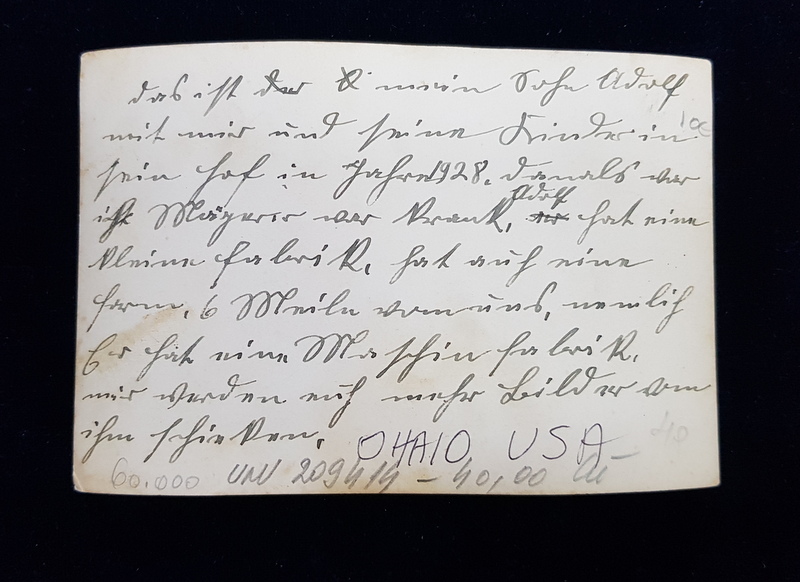 das ist der mein Sohn Adolf
mit mir und seine Kinder in
sein hof in Jahre 1928. damals war
ich Mägerer war krank, Adolf er hat eine
kleine fabrik, hat auch eine
farm, 6 Meile vom uns, nemlich
Er hat eine Maschin fabrik.
mir werden euch mehr Bilder vom
ihm schicken.
OHAIO USA
60.000 209414 - 40,00
40